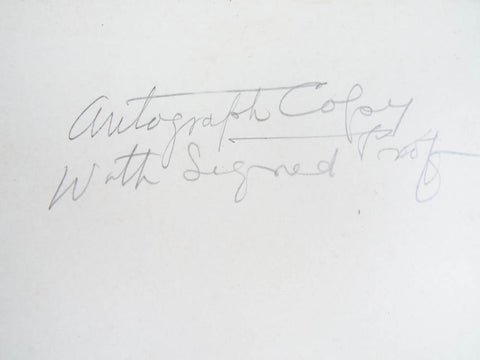 Autograph Copy
With Signed Prof